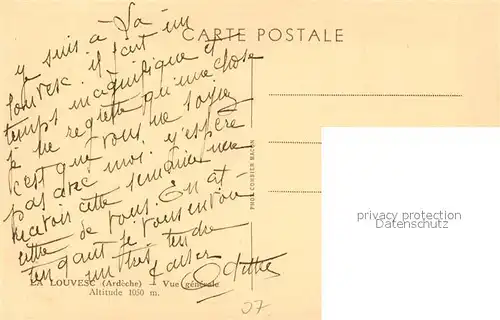 CARTE POSTALE
je suis à La
Louvesc il fait un
temps magnifique et
je ne regrette qu'une chose
c'est que vous ne soyez
pas avec moi. j'espère
recevoir cette semaine une
lettre de vous. En at-
tendant je vous envoie
un très tendre
baiser
Odette
PHOT. COMBIER MACON
LA LOUVESC (Ardèche) - Vue générale
Altitude 1050 m.
07
privacy protection
Privatsphärenschutz